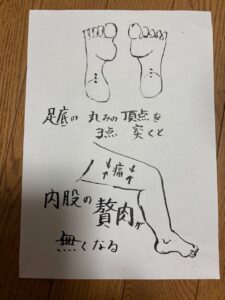 足底の 丸みの 頂点を
3点 突くと
痛
内股の
贅肉が
無くなる